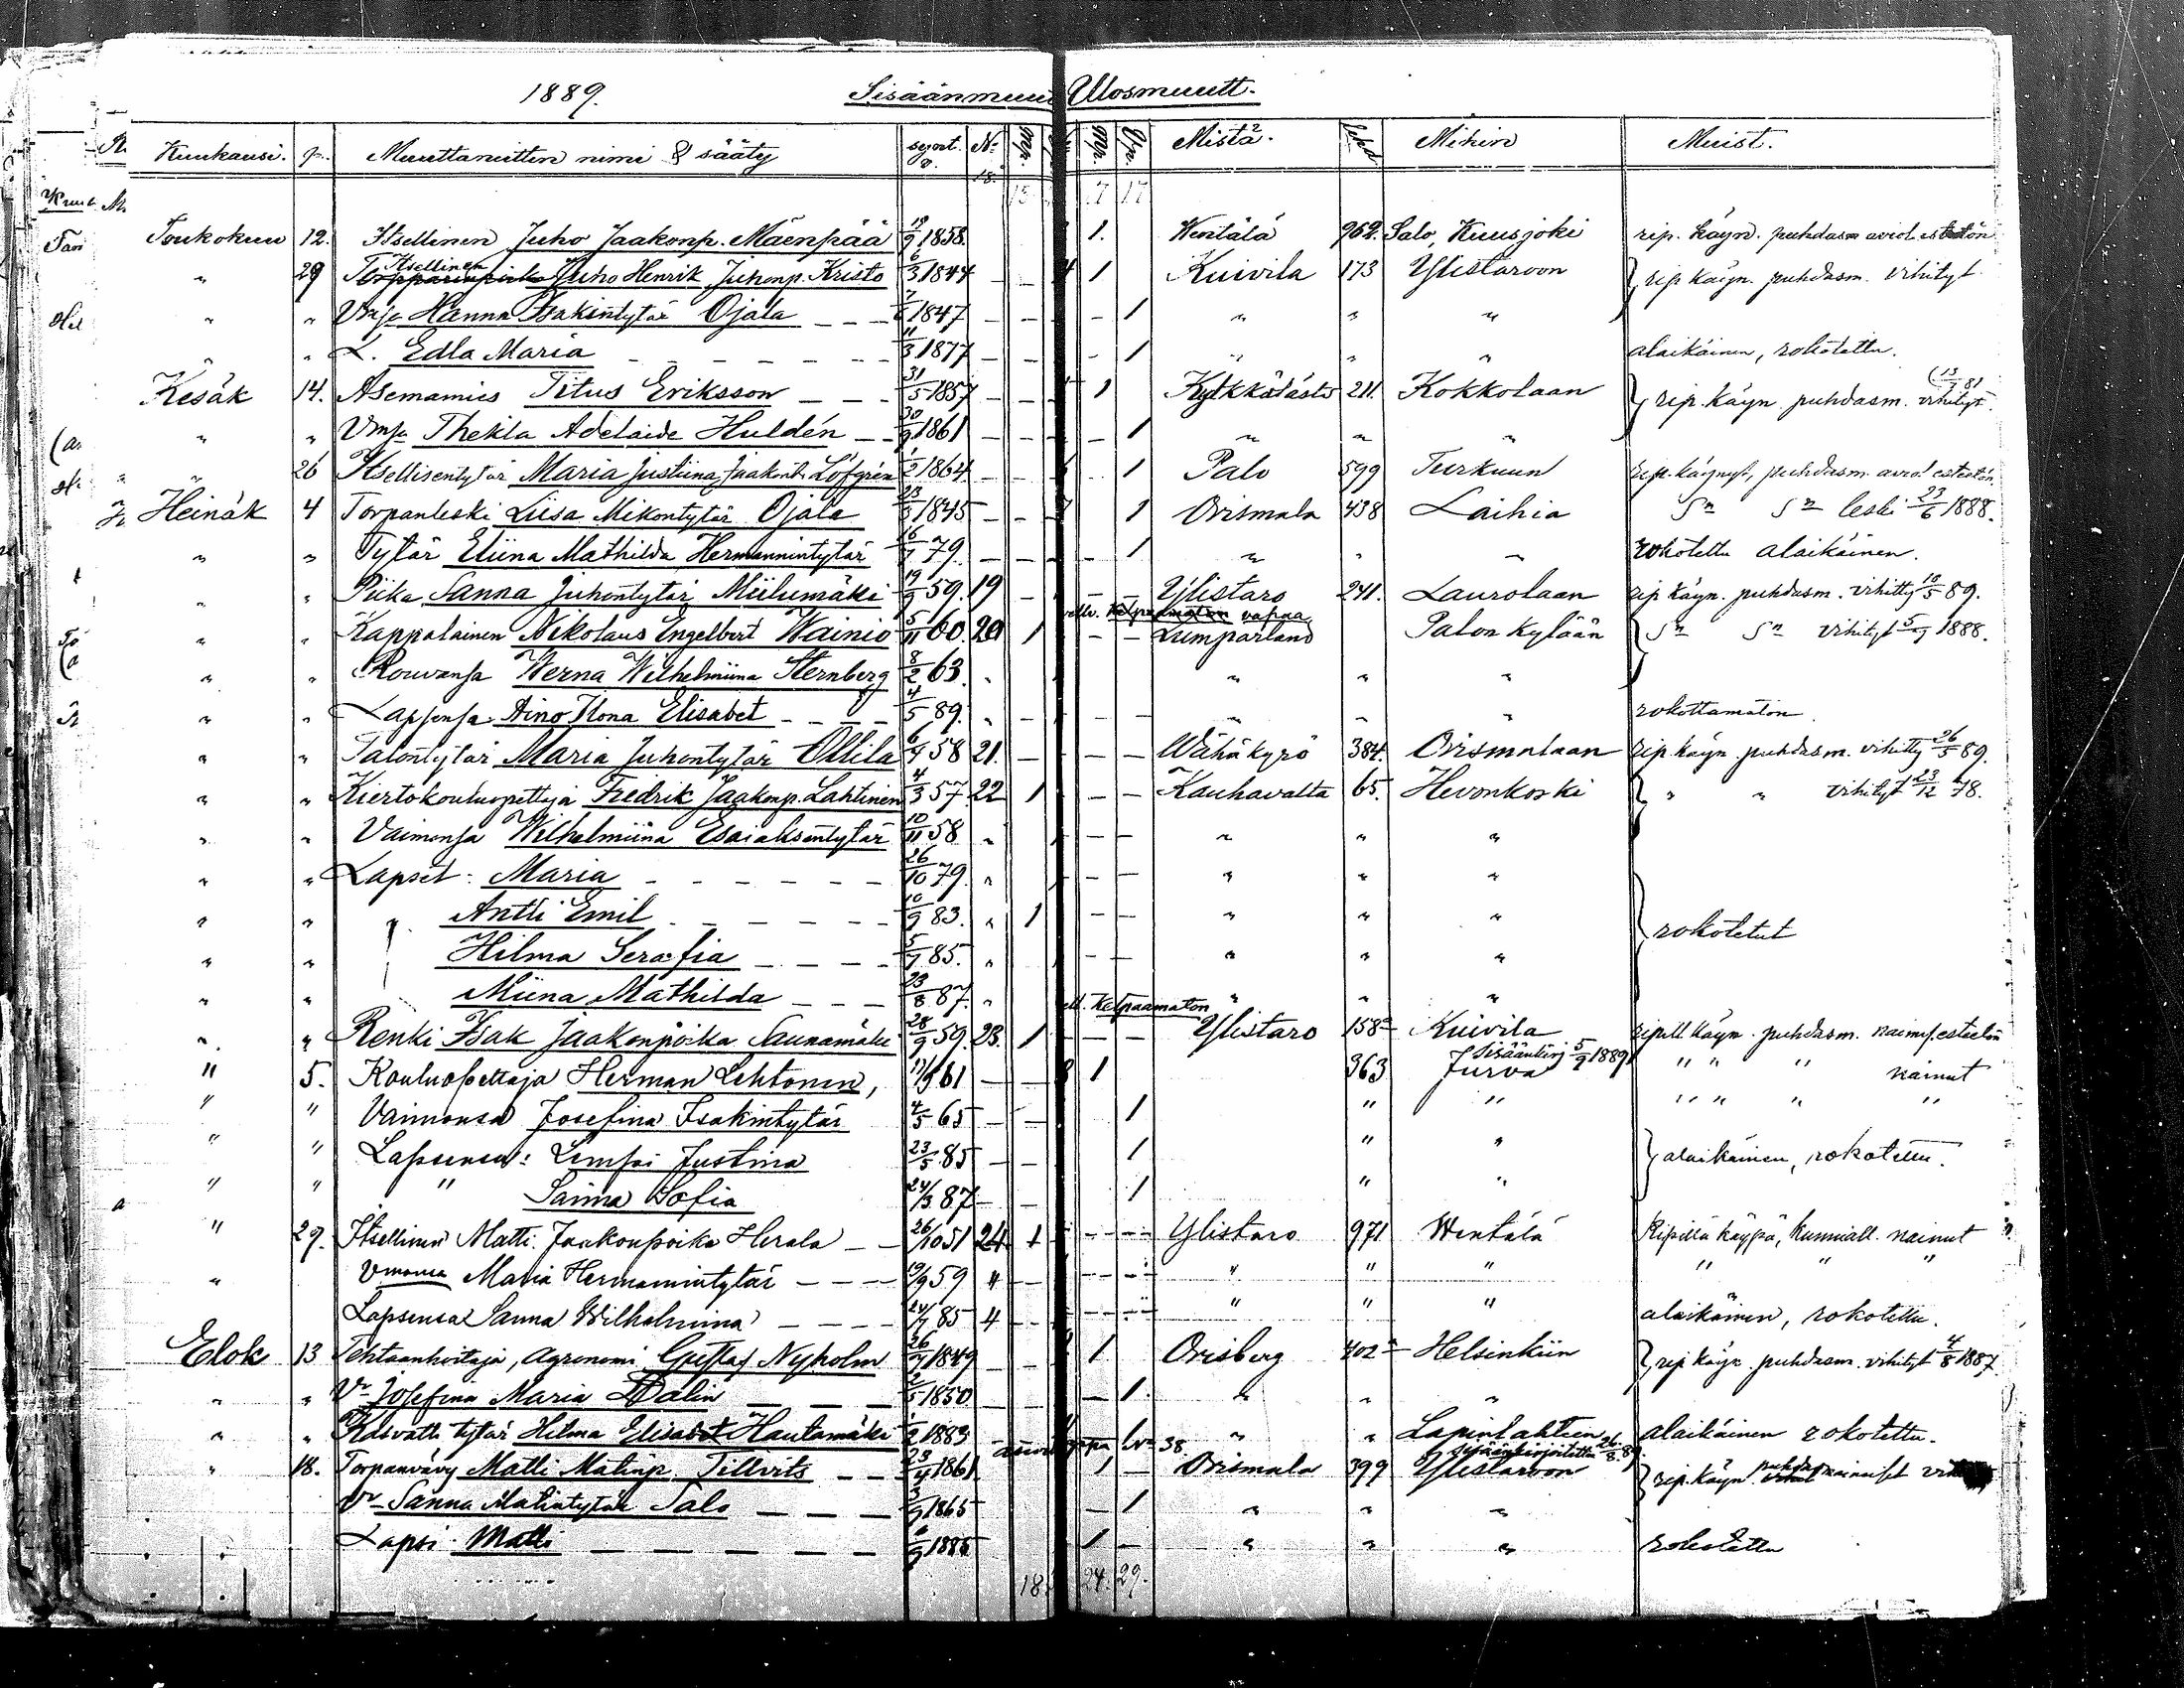 1889. Sisäänmuu Ulosmuutt.
Kuukausi. p. Muuttanutten nimi & sääty synt. v. No. Mp. Mp. Vp. Mistä. Mihin Muist.
18. 15. 17 17
Toukokuu 12. Itsellinen Juho Jaakonp. Mäenpää 1858. 1. Wentälä 962. Salo, Kuusjoki rip. käyn. puhdasm aviol. estetön
Itsellinen
" 29 Juho Henrik Juhonp. Kristo 6/3 1844 1 Kuivila 173 Ylistaroon rip käyn. puhdasm. vihityt
" " Vmsa Hanna Isakintytär Ojala 1847 1 " " "
" L. Edla Maria 11/3 1877 1 " " " alaikäinen, rokotettu.
Kesäk 14. Asemamies Titus Eriksson 31/5 1857 1 Kylkkälästä 211. Kokkolaan rip. käyn puhdasm. vihityt.
" " Vmsa Thekla Adelaide Huldén 30/9 1861 1 " " "
" 26 Itsellisentytär Maria Justiina Jaakont. Löfgren 1/2 1864 1 Palo 599 Turkuun rip. käynyt, puhdasm. aviol estetön
Heinäk 4 Torpanleski Liisa Mikontytär Ojala 1845 1 Orismala 438 Laihia Sn Sn leski 23/6 1888.
" " Tytär Eliina Mathilda Hermannintytär 16/7 79. 1 " " " rokotettu alaikäinen.
" " Piika Sanna Juhontytär Miilumäki 19/9 59. 19 Ylistaro 241. Laurolaan rip käyn. puhdasm. vihitty 10/5 89.
kelpaamaton vapaa
" " Kappalainen Nikolaus Engelbert Wainio 5/11 60. 20 1 Lumparland Palon kylään Sn Sn vihityt 1888.
" " Rouvansa Werna Wilhelmiina Sternberg 8/2 63. " " " "
" " Lapsensa Aino Ilona Elisabet 4/5 89. " " " " rokottamaton
" " Talontytär Maria Juhontytär Ollila 58 21. Wähäkyrö 384. Orismalaan rip. käyn. puhdasm. vihitty 26/5 89.
" " Kiertokoulunopettaja Fredrik Jaakonp. Lahtinen 4/3 57 22 1 Kauhavalta 65. Hevonkoski " " vihityt 23/12 78.
" " Vaimonsa Wilhelmiina Esaiaksentytär 10/11 58 " " " "
" " Lapset: Maria 26/10 79. " " " "
" " " Antti Emil 10/9 83. " 1 " " " rokotetut
" " Hilma Serafia 5/7 85. " " " "
" " Miina Mathilda 23/8 87. " " " "
Kelpaamaton
" " Renki Isak Jaakonpoika Saunamäki 28/9 59. 23. 1 Ylistaro 158 Kuivila ripill. käyn. puhdasm. naimis. esteetön
Sisäänkirj 5/9 1889
" 5. Kouluopettaja Herman Lehtonen, 61 1 363 Jurva " " " nainut
" " Vaimonsa Josefina Isakintytär 4/5 65 1 " " " " " "
" " Lapsensa: Lempi Justina 23/5 85 1 " " alaikäinen, rokotettu.
" " " Saima Sofia 24/3 87 1 " "
" 29. Itsellinen Matti Jaakonpoika Herala 26/10 51 24 1 Ylistaro 971 Wentälä Ripillä käypä, kunniall. nainut
" Vmonsa Maria Hermannintytär 19/9 59 " " " " " " "
Lapsensa Sanna Wilhelmina 24/7 85 " " " " alaikäinen, rokotettu.
Elok 13 Tehtaanhoitaja, Agronomi Gustaf Nyholm 26/7 1849 1. Orisberg 402 Helsinkiin rip käyn. puhdasm. vihityt 4/8 1887
" " Vr Josefina Maria Dalin 2/5 1850 1. " " "
" " Kasvatti tytär Hilma Elisabet Hautamäki 1883 38 " " Lapinlahteen alaikäinen rokotettu.
sisäänkirjoitettu 26/8 89.
" 18. Torpanvävy Matti Matinp. Tillvits 23/4 1861 1 Orismala 399 Ylistaroon rip. käyn. puhdas naineet
Vr Sanna Matintytär Salo 3/9 1865 1 " " "
Lapsi Matti 1885 1 " " " rokotettu
18. 24. 29.